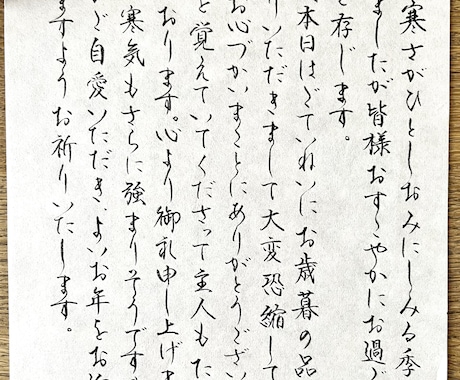 寒さがひとしおみにしみる季
ましたが皆様おすこやかにお過ご
と存じます。
本日はごていねいにお歳暮の品
りいただきまして大変恐縮して
お心づかいまことにありがとうござい
と覚えていてくださって主人もた
おります。心より御礼申し上げま
寒気もさらに強まりそうです
ご自愛いただき、よいお年をお
ますようお祈りいたします。